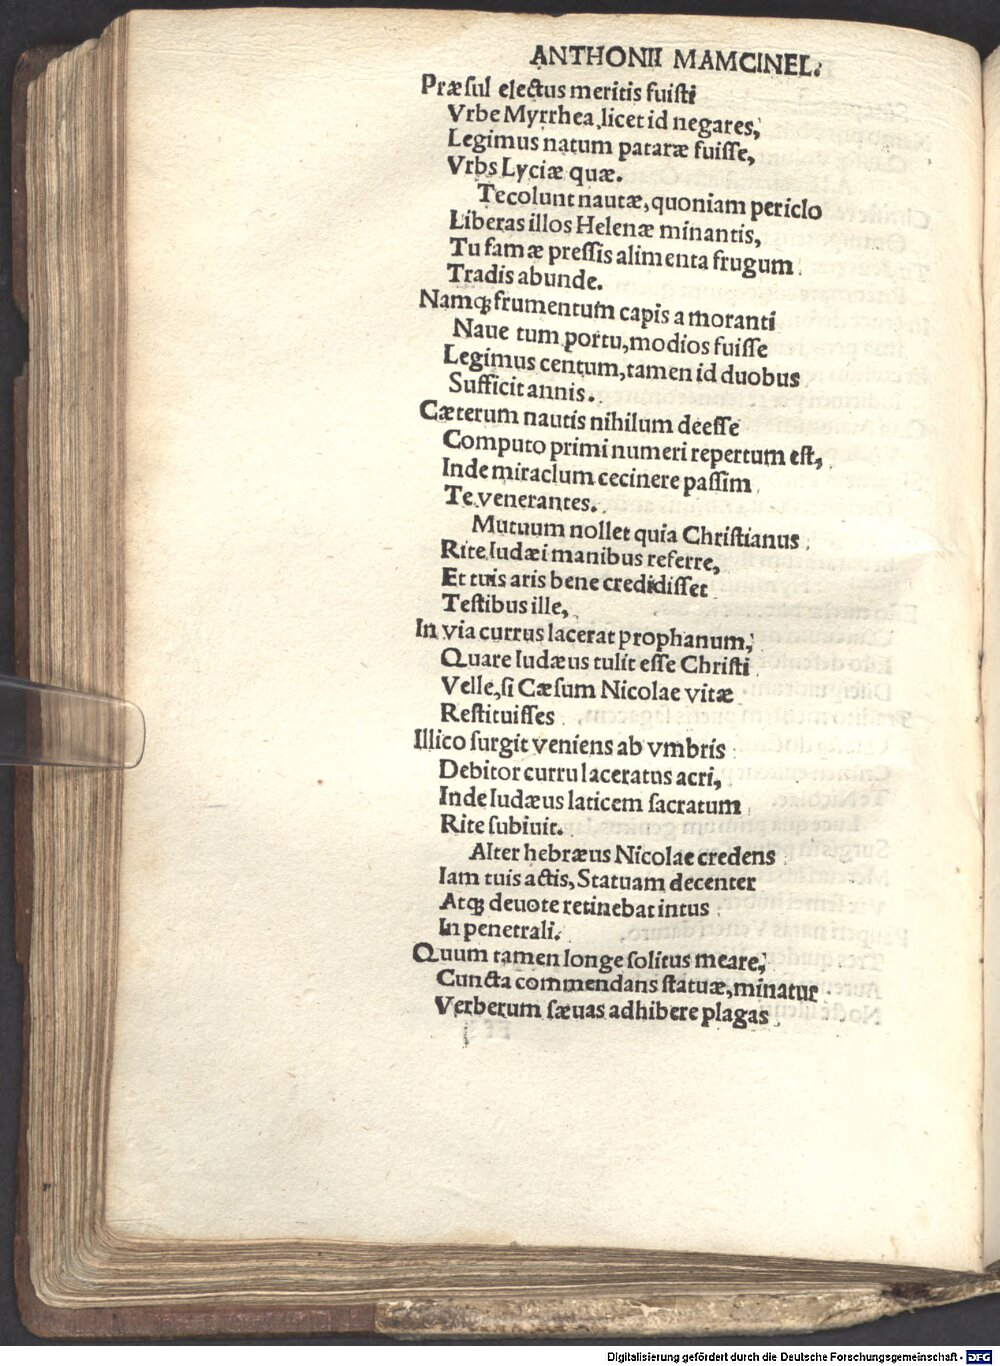 ANTHONII MAMCINEL.
Præſul electus meritis fuiſti
Vrbe Myrrhea, licet id negares,
Legimus natum pataræ fuiſſe,
Vrbs Lyciæ quæ.
Te colunt nautæ, quoniam periclo
Liberas illos Helenæ minantis,
Tu famæ preſſis alimenta frugum
Tradis abunde.
Namqꝫ frumentum capis a moranti
Naue tum portu, modios fuiſſe
Legimus centum, tamen id duobus
Sufficit annis.
Cæterum nautis nihilum deeſſe
Computo primi numeri repertum eſt,
Inde miraclum cecinere paſſim
Te venerantes.
Mutuum nollet quia Chriſtianus
Rite Iudæi manibus referre,
Et tuis aris bene credidiſſet
Teſtibus ille,
In via currus lacerat prophanum,
Quare Iudæus tulit eſſe Chriſti
Velle, ſi Cæſum Nicolae vitæ
Reſtituiſſes
Illico ſurgit veniens ab vmbris
Debitor curru laceratus acri,
Inde Iudæus laticem ſacratum
Rite ſubiuit.
Alter hebræus Nicolae credens
Iam tuis actis, Statuam decenter
Atqꝫ deuote retinebat intus
In penetrali.
Quum tamen longe ſolitus meare,
Cuncta commendans ſtatuæ, minatur
Verberum ſæuas adhibere plagas
Digitalisierung gefördert durch die Deutsche Forschungsgemeinschaft - DFG